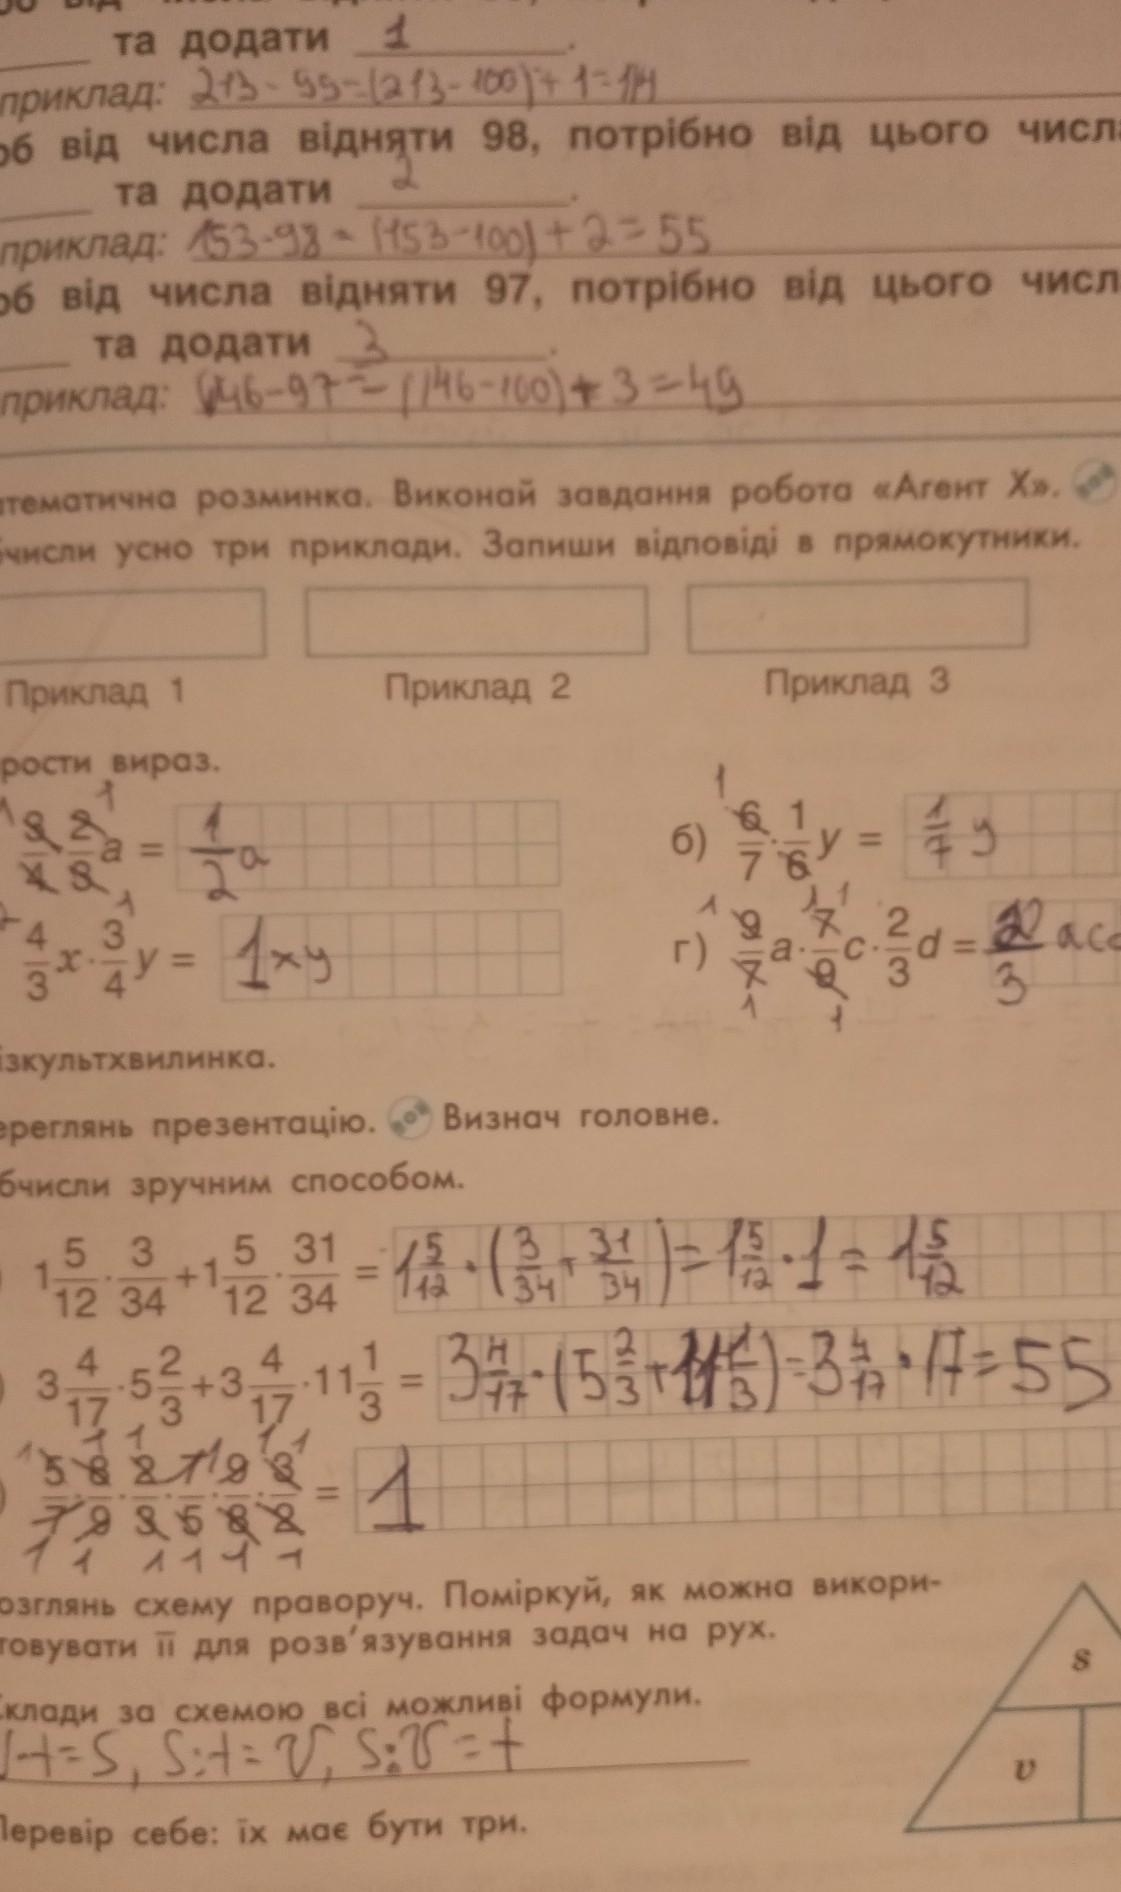 та додати 1.
приклад: 213 - 99 = (213 - 100) + 1 = 114
від числа відняти 98, потрібно від цього
та додати 2.
приклад: 153 - 98 = (153 - 100) + 2 = 55
від числа відняти 97, потрібно від цього
та додати 3.
приклад: 146 - 97 = (146 - 100) + 3 = 49
розминка. Виконай завдання робота «Агент Х».
усно три приклади. Запиши відповіді в прямокутники.
Приклад 1 Приклад 2 Приклад 3
вираз.
1 1 1
3/4 2/3 a = 1/2 a б) 6/7 · 1/6 y = 1/7 y
1 1 1 1
4/3 x · 3/4 y = 1xy г) 9/7 a · 7/9 c · 2/3 d = 2/3
1 1
презентацію. Визнач головне.
зручним способом.
1 5/12 · 3/34 + 1 5/12 · 31/34 = 1 5/12 · (3/34 + 31/34) = 1 5/12 · 1 = 1 5/12
3 4/17 · 5 2/3 + 3 4/17 · 11 1/3 = 3 4/17 · (5 2/3 + 11 1/3) = 3 4/17 · 17 = 55
1 1 1 1 1 1
5/7 · 8/9 · 2/3 · 7/5 · 9/8 · 3/2 = 1
1 1 1 1 1 1
схему праворуч. Поміркуй, як можна викори-
її для розв’язування задач на рух.
за схемою всі можливі формули.
t = S, S : t = V, S : V = t
s
v
себе: їх має бути три.